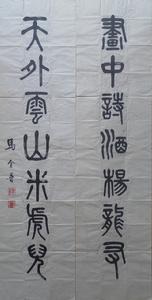 畫中詩酒楊龍友
天外雲山米虎兒
馬公愚